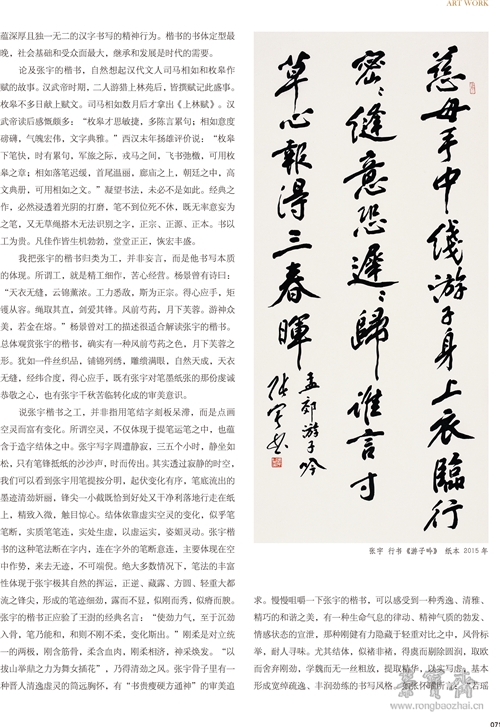 ART WORK
蕴深厚且独一无二的汉字书写的精神行为。楷书的书体定型最
晚，社会基础和受众面最大，继承和发展是时代的需要。
论及张宇的楷书，自然想起汉代文人司马相如和枚皋作
赋的故事。汉武帝时期，二人游猎上林苑后，皆撰赋记此盛事。
枚皋不多日献上赋文。司马相如数月后才拿出《上林赋》。汉
武帝读后感慨颇多：“枚皋才思敏捷，多陈言累句；相如意度
磅礴，气魄宏伟，文字典雅。”西汉末年扬雄评价说：“枚皋
下笔快，时有累句，军旅之际，戎马之间，飞书弛檄，可用枚
皋之章；相如落笔迟缓，首尾温丽，廊庙之上，朝廷之中，高
文典册，可用相如之文。”凝望书法，未必不是如此。经典之
作，必然浸透着光阴的打磨，笔不到位死不休，既无率意妄为
之笔，又无草绳搭木无法识别之字，正宗、正源、正本。书以
工为贵。凡佳作皆生机勃勃，堂堂正正，恢宏丰盛。
我把张宇的楷书归类为工，并非妄言，而是他书写本质
的体现。所谓工，就是精工细作，苦心经营。杨景曾有诗曰：
“天衣无缝，云锦薰浓。工力悉敌，斯为正宗。得心应手，矩
矱从容。绳取其直，剑爱其锋。风前芍药，月下芙蓉。游神众
美，若金在熔。”杨景曾对工的描述很适合解读张宇的楷书。
总体观赏张宇的楷书，确实有一种风前芍药之色，月下芙蓉之
形。犹如一件丝织品，铺锦列绣，雕缋满眼，自然天成，天衣
无缝，经纬合度，得心应手，既有张宇对笔墨纸张的那份虔诚
恭敬之心，也有张宇千秋苦临转化成的审美意识。
说张宇楷书之工，并非指用笔结字刻板呆滞，而是点画
空灵而富有变化。所谓空灵，不仅体现于提笔运笔之中，也蕴
含于造字结体之中。张宇写字周遭静寂，三五个小时，静坐如
松，只有笔锋抵纸的沙沙声，时而传出。其实透过寂静的时空，
我们可以看到张宇用笔提按分明，起伏变化有序，笔底流出的
墨迹清劲妍丽，锋尖一小截既恰到好处又干净利落地行走在纸
上，精致入微，触目惊心。结体依靠虚实空灵的变化，似乎笔
笔断，实质笔笔连，实处生虚，以虚运实，姿媚灵动。张宇楷
书的这种笔法断在字内，连在字外的笔断意连，主要体现在空
中作势，来去无迹，不可端倪。绝大多数情况下，笔法的丰富
性体现于张宇极其自然的挥运，正逆、藏露、方圆、轻重大都
流之锋尖，形成的笔迹细劲，露而不显，似刚而秀，似瘠而腴。
张宇的楷书正应验了王澍的经典名言：“使劲力气，至于沉劲
入骨，笔乃能和，和则不刚不柔，变化斯出。”刚柔是对立统
一的两极，刚含筋骨，柔含血肉，刚柔相济，神采焕发。“以
拔山举鼎之力为舞女插花”，乃得清劲之风。张宇骨子里有一
种晋人清逸虚灵的简远胸怀，有“书贵瘦硬方通神”的审美追
慈母手中线游子身上衣临行
密密缝意恐迟迟归谁言寸
草心报得三春晖
孟郊游子吟
张宇书
张宇 行书《游子吟》 纸本 2015年
求。慢慢咀嚼一下张宇的楷书，可以感受到一种秀逸、清雅、
精巧的和谐之美，有一种生命气息的律动、精神气质的勃发、
情感状态的宣泄，那种刚健有力隐藏于轻重对比之中，风骨标
举，耐人寻味。尤其结体，似褚非褚，得虞而剔除圆润，取欧
而舍弃刚劲，学魏而无一丝粗放，提取精华，以实写虚，基本
形成宽绰疏逸、丰润劲练的书写风格。如张怀瓘所言：“若瑶
荣宝斋
www.rongbaozhai.cn